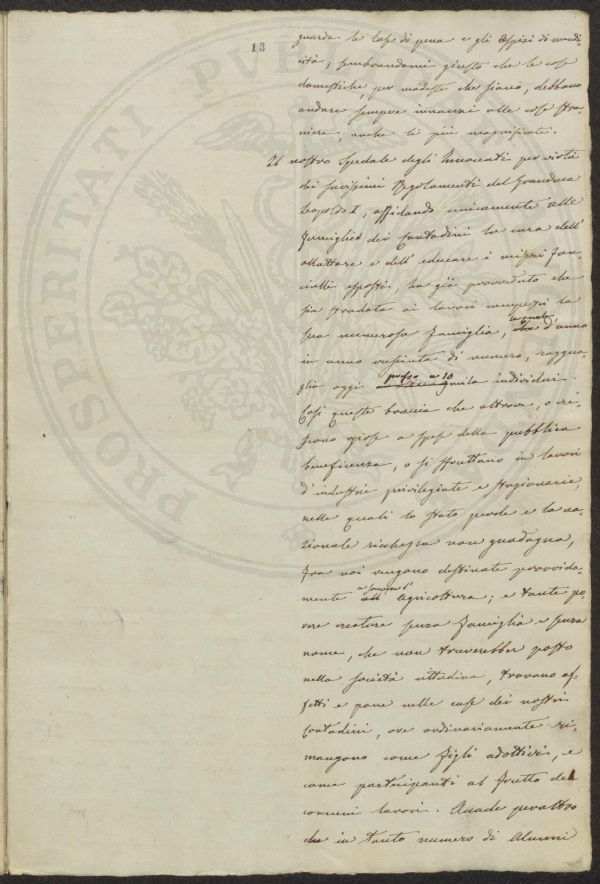 13
guarda le Case di pena e gli Ospizi di mendi-
cità; sembrandomi giusto che le cose
domestiche, per modeste che siano, debbano
andare sempre innanzi alle cose stra-
niere, anche le più magnificate.
Il nostro Spedale degli Innocenti per virtù
dei savissimi Regolamenti del Granduca
Leopoldo I, affidando unicamente alle
Famiglie dei Contadini la cura dell'
allattare e dell' educare i miseri Fan-
ciulli esposti, ha già provveduto che
sia stradata ai lavori campestri la
sua numerosa Famiglia, che d'anno
la quale
in anno cresciuta di numero, raggua-
glia oggi mila individui.
presso a 10
Così queste braccia che altrove, o cre-
scono oziose a spese della pubblica
beneficenza, o si sfruttano in lavori
d'industrie privilegiate e stazionarie,
nelle quali lo stato perde e la na-
zionale ricchezza non guadagna,
fra noi vengono destinate provvida-
mente all' Agricoltura; e tante po-
vere creature senza Famiglia e senza
nome, che non troverebber posto
nella società cittadina, trovano af-
fetti e pane nelle case dei nostri
Contadini, ove ordinariamente ri-
mangono come figli adottivi, e
come partecipanti al frutto dei
comuni lavori. Accade peraltro
che in tanto numero di Alunni
PROSPERITATI PVBLICAE